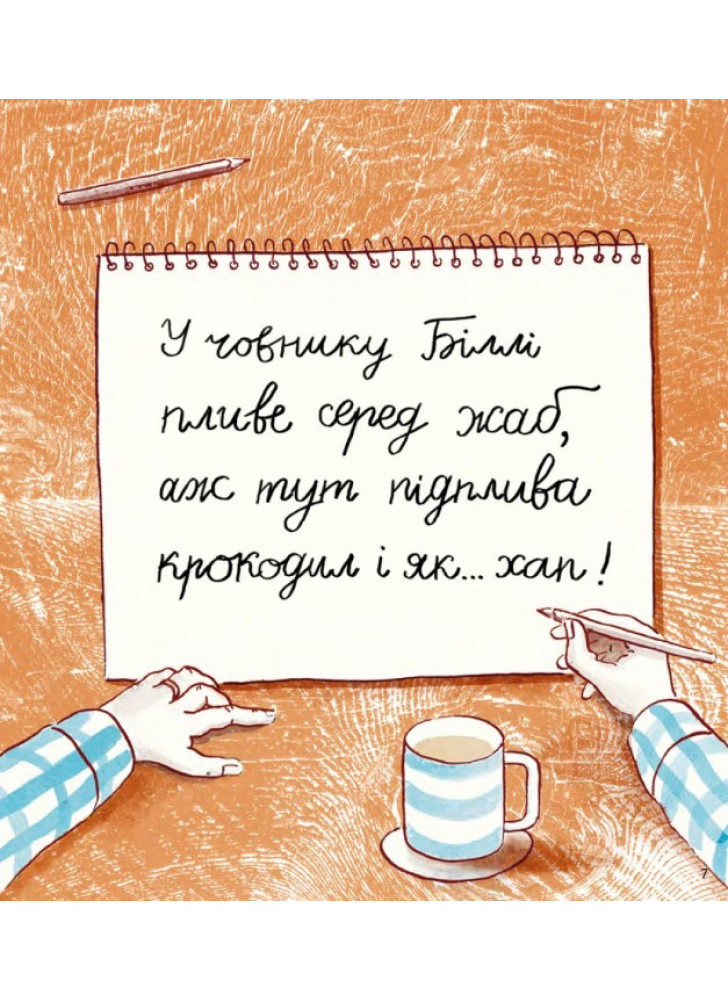 У човнику Біллі
пливе серед жаб,
аж тут підплива
крокодил і як... хап!
7